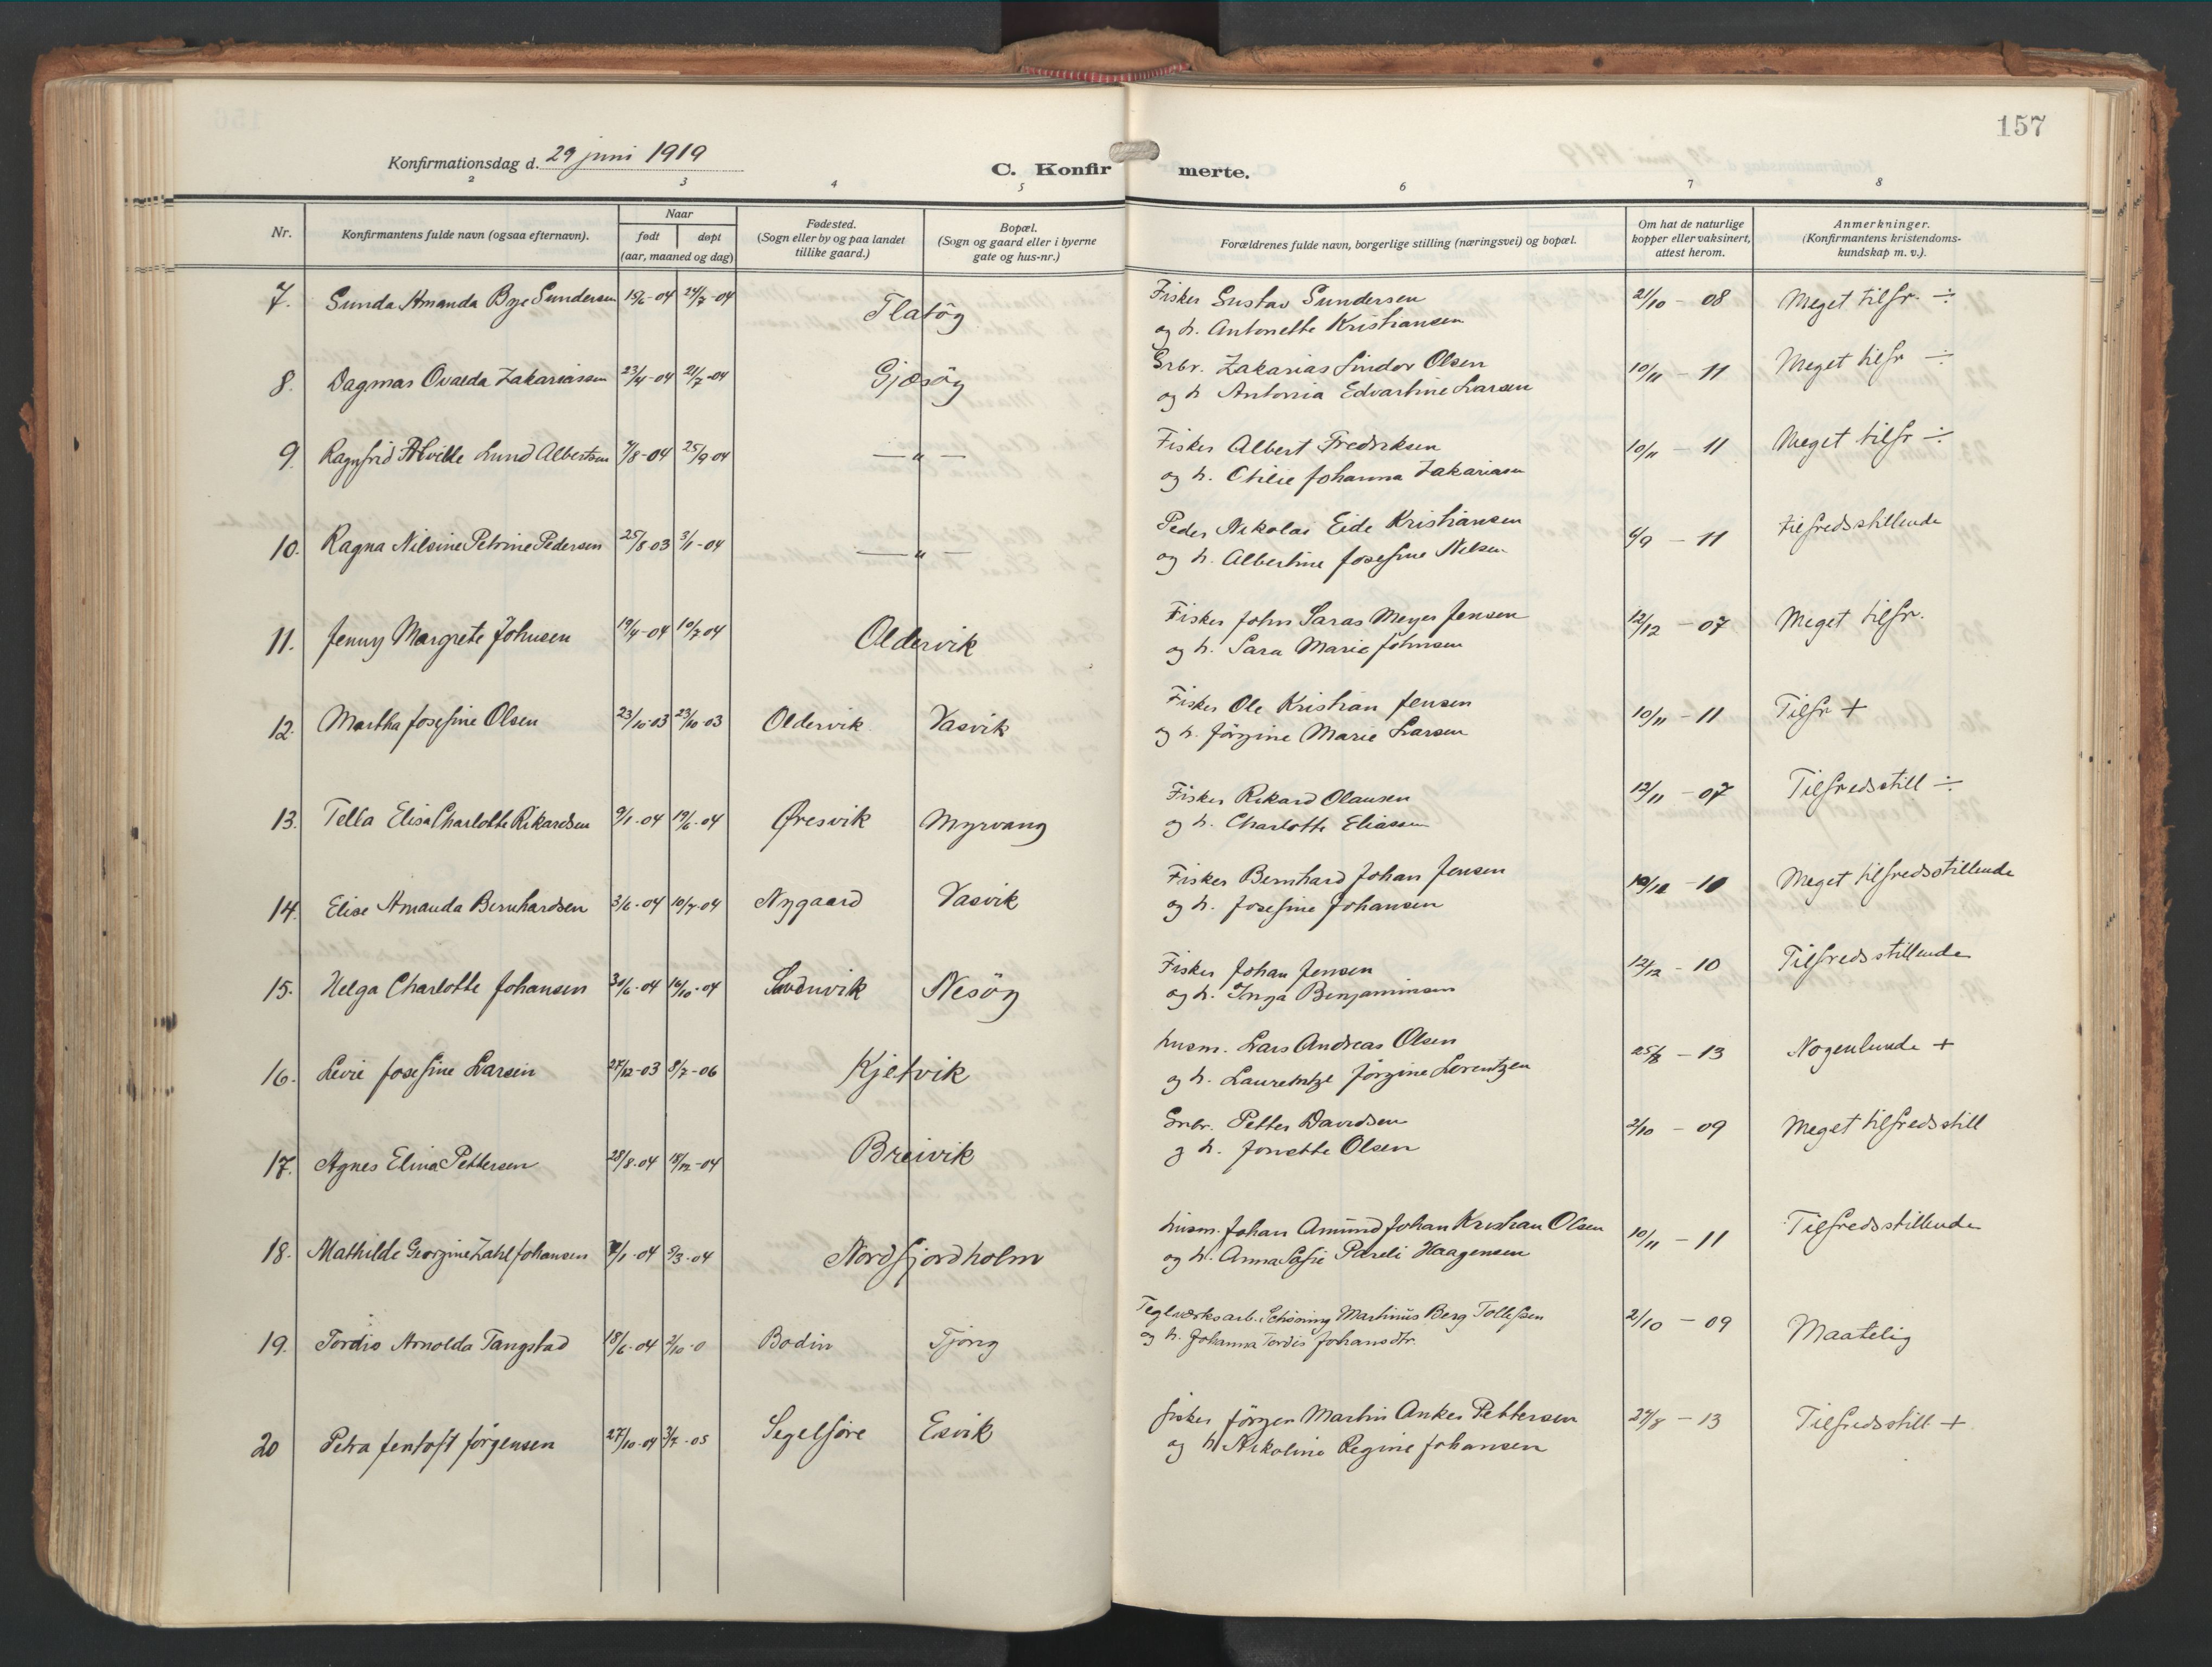 157
Konfirmationsdag d. 29 juni 1919
C. Konfirmerte.
2 3 4 5 6 7 8
Nr. Konfirmantens fulde navn (ogsaa efternavn). Naar født døpt (aar, maaned og dag) Fødested. (Sogn eller by og paa landet tillike gaard.) Bopæl. (Sogn og gaard eller i byerne gate og hus-nr.) Forældrenes fulde navn, borgerlige stilling (næringsvei) og bopæl. Om hat de naturlige kopper eller vaksinert, attest herom. Anmerkninger. (Konfirmantens kristendoms-kundskap m. v.).
7. Sunda Amanda Bye Gundersen 15/6-04 24/7-04 Flatöy Fisker Gustav Gundersen 21/10 - 08 Meget tilfr. ÷
og h. Antonette Kristiansen
8. Dagmar Ovaeda Zakariassen 23/4-04 21/7-04 Gjæsöy Grbr. Zakarias Sindor Olsen 10/11 - 11 Meget tilfr ÷
og h Antonia Edvartine Larsen
9. Ragnfrid Alvilde Lund Albertsen 7/8-04 25/9 04 — " — Fisker Albert Fredriksen 10/11 - 11 Meget tilfr ÷
og h. Otilie Johanna Zakariasen
10. Ragna Nilsine Petrine Pedersen 25/8-03 3/1-04 — " — Peder Nikolai Eide Kristiansen 6/9 - 11 tilfredsstillende
og h. Albertine Josefine Nilsen
11. Jenny Margrete Johnsen 19/4-04 10/7 04 Oldervik Fisker John Saras Meyer Jensen 12/12 - 07 Meget tilfr.
og h. Sara Marie Johnsen
12. Martha Josefine Olsen 23/10-03 23/10-03 Oldervik Vasvik Fisker Ole Kristian Jensen 10/11 - 11 Tilfr +
og h. Jörgine Marie Larsen
13. Tella Elisa Charlotte Rikardsen 9/1-04 19/6-04 Øresvik Myrvang Fisker Rikard Olausen 12/11 - 07 Tilfredsstill ÷
og h. Charlotte Eliassen
14. Elise Amanda Bernhardsen 3/6-04 10/7-04 Nygaard Vasvik Fisker Bernhard Johan Jensen 19/12 - 10 Meget tilfredsstillende
og h. Josefine Johansen
15. Helga Charlotte Johansen 30/6-04 16/10-04 Nesöy Fisker Johan Jensen 12/12 - 10 Tilfredsstillende
og h. Inga Benjaminsen
16. Levie Josefine Larsen 27/12-03 8/7-06 Kjelvik husm. Lars Andreas Olsen 25/8 - 13 Nogenlunde +
og h. Laurentze Jörgine Lorentzen
17. Agnes Elina Pettersen 28/8-04 18/12-04 Breivik Grbr. Petter Davidsen 2/10 - 09 Meget tilfredsstill
og h. Jonette Olsen
18. Mathilde Georgine Zahl Johansen /1-04 5/3-04 Nordfjordholm husm. Johan Amund Johan Kristian Olsen 10/11 - 11 Tilfredsstillende
og h. Anna Sofie Pareli Haagensen
19. Tordis Arnolda Tangstad 18/6-04 2/10-0 Bodin Tjong Teglverksarb. Schöning Martinus Berg Tollefsen 2/10 - 09 Maatelig
og h. Johanna Tordis Johansdtr.
20 Petra Jentoft Jörgensen 27/10-04 3/7-05 Segelfore Esvik fisker Jörgen Martin Anker Pettersen 24/8 - 13 Tilfredsstill +
og h Nikoline Regine Johansen